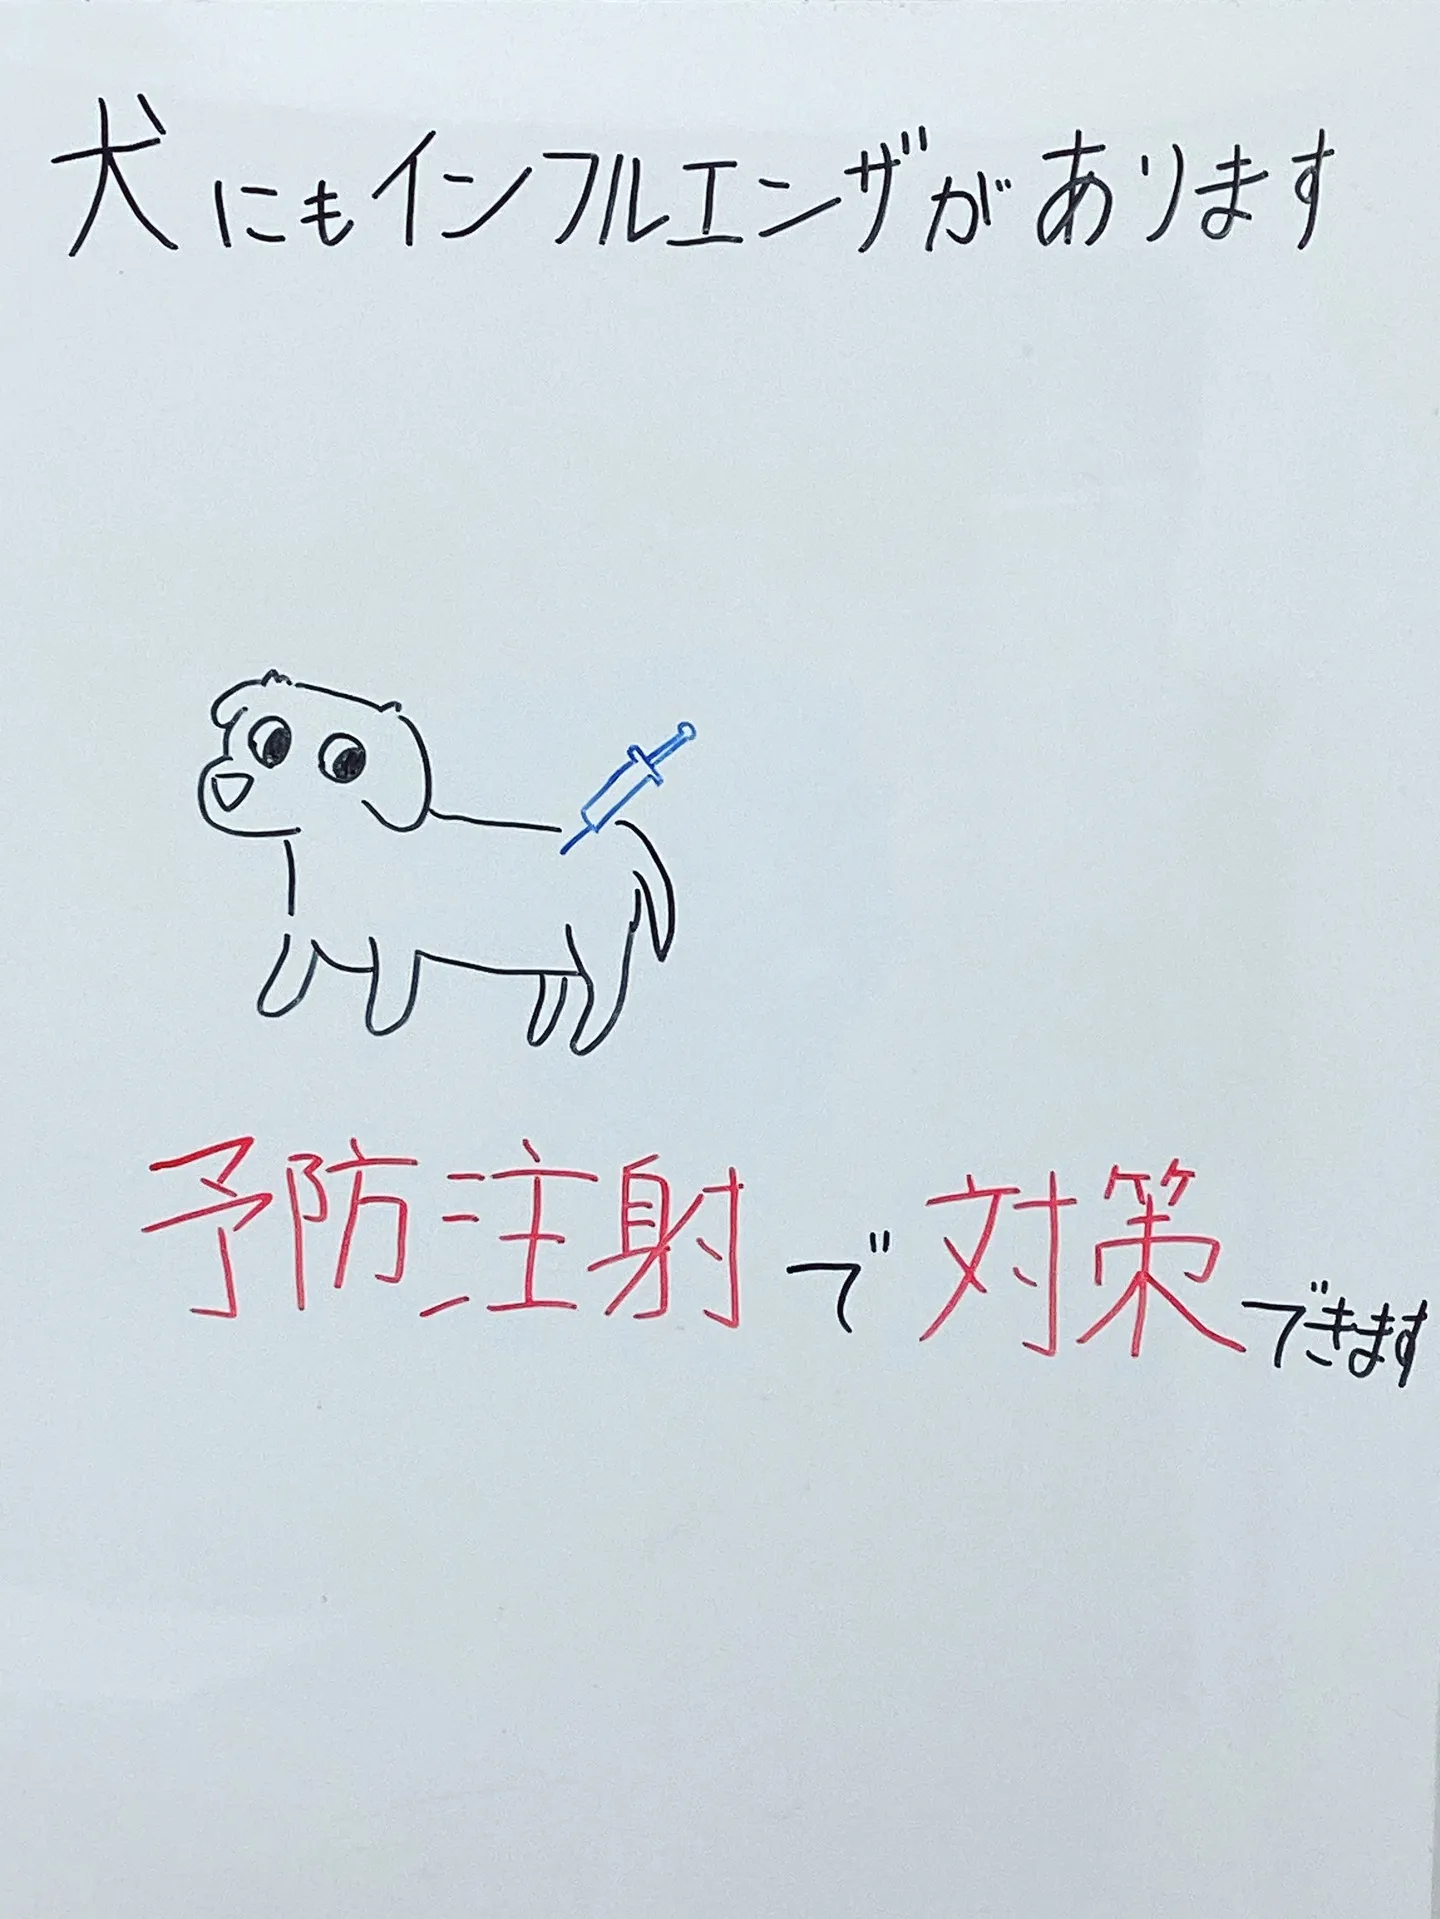 犬にもインフルエンザがあります
予防注射で対策できます